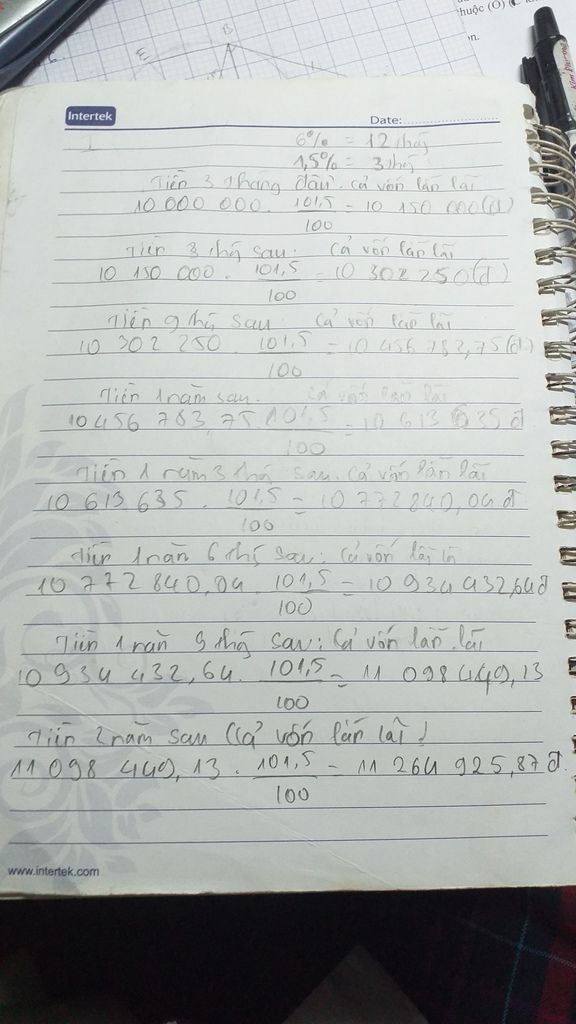 thuộc (O)
Intertek
Date:
1
6% = 12 thg
1,5% = 3 thg
Tiền 3 tháng đầu. cả vốn lẫn lãi
10 000 000. 101,5/100 = 10 150 000(đ)
Tiền 3 thg sau: cả vốn lẫn lãi
10 150 000. 101,5/100 = 10 302 250(đ)
Tiền 9 thg sau: cả vốn lẫn lãi
10 302 250. 101,5/100 = 10 456 783,75(đ)
Tiền 1 năm sau. cả vốn lẫn lãi
10 456 783,75. 101,5/100 = 10 613 635 đ
Tiền 1 năm 3 thg sau. cả vốn lẫn lãi
10 613 635. 101,5/100 = 10 772 840,04 đ
Tiền 1 năm 6 thg sau: cả vốn lẫn lãi
10 772 840,04. 101,5/100 = 10 934 432,64 đ
Tiền 1 năm 9 thg sau: cả vốn lẫn lãi
10 934 432,64. 101,5/100 = 11 098 449,13
Tiền 2 năm sau (cả vốn lẫn lãi)
11 098 449,13. 101,5/100 = 11 264 925,87 đ.
www.intertek.com